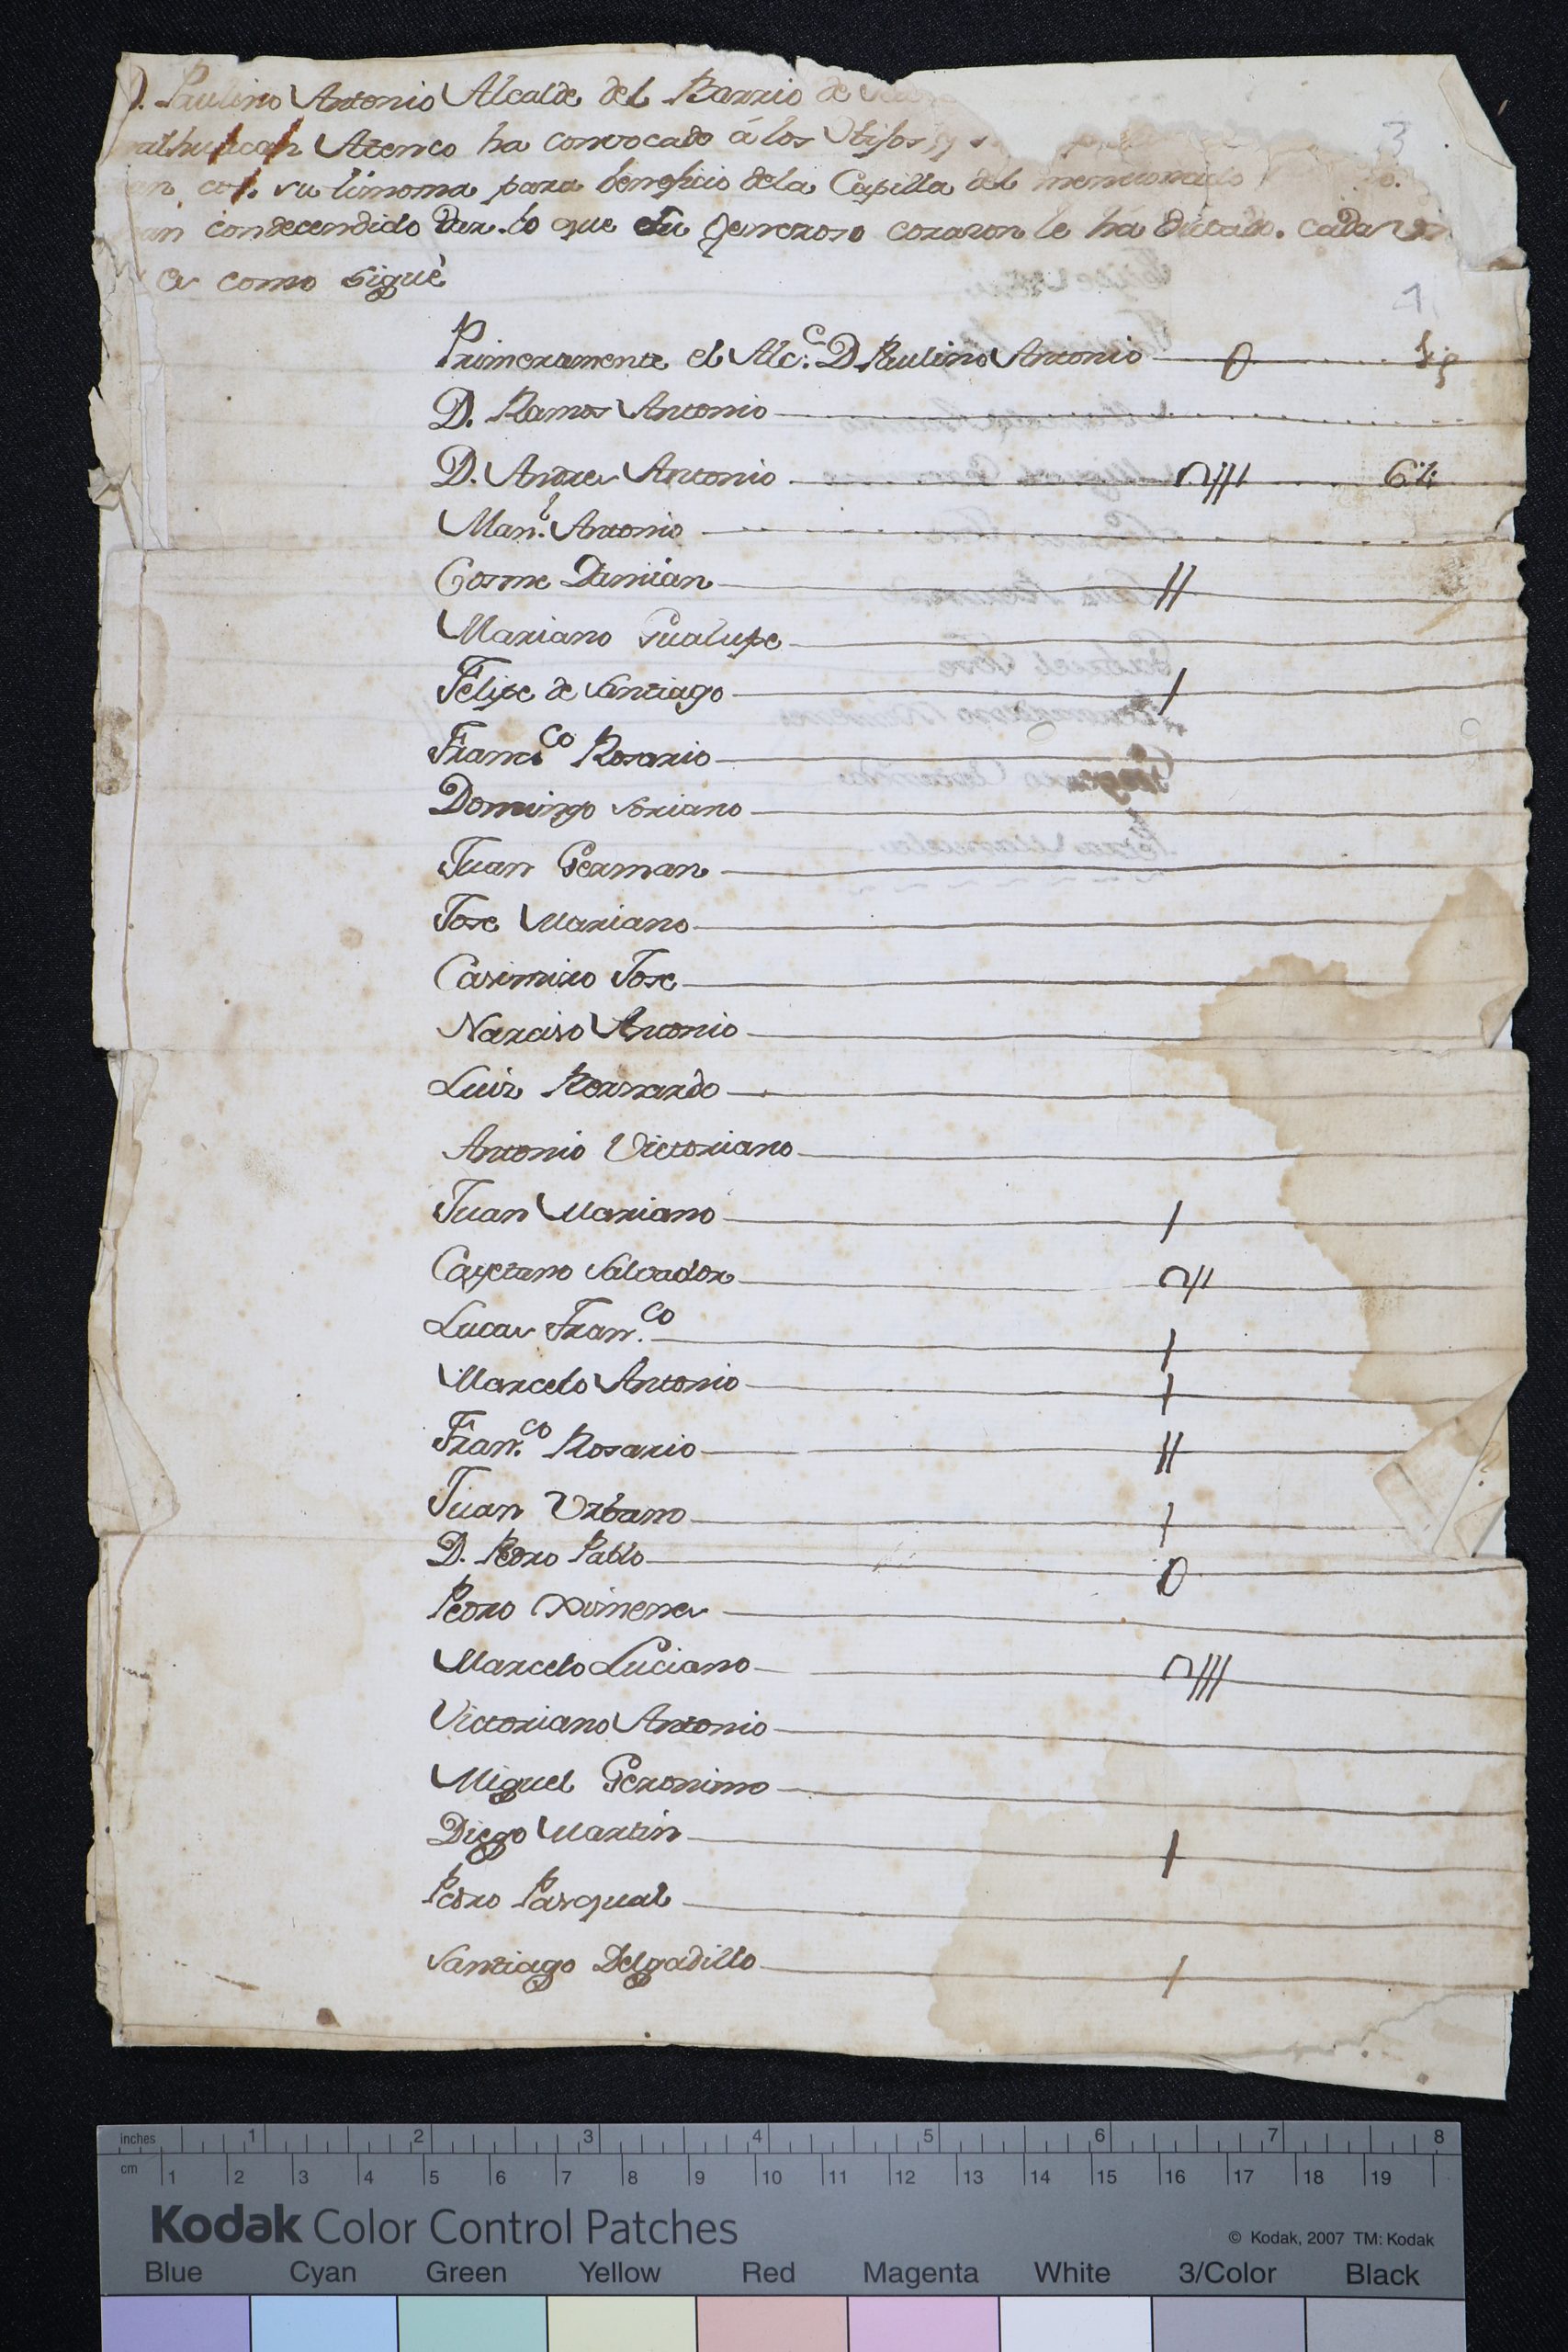 D. Paulino Antonio Alcalde del Barrio de
Atenco ha convocado á los Hijos
con su limosna para beneficio dela Capilla del mencionado
han condecendido dar lo que su generoso corazon le ha dictado. cada
es como sigue
3
1
Primeramente el Alc.e D. Paulino Antonio
D. Ramos Antonio
D. Andres Antonio
Man.l Antonio
Cosme Damian
Mariano Gualupe
Felipe de Santiago
Franco Rosario
Domingo Soriano
Juan German
Jose Mariano
Casimiro Jose
Narciso Antonio
Luis Bernardo
Antonio Victoriano
Juan Mariano
Cayetano Salvador
Lucas Fran.co
Marcelo Antonio
Fran.co Rosario
Juan Urbano
D. Pedro Pablo
Pedro Ximenes
Marcelo Luciano
Victoriano Antonio
Miguel Geronimo
Diego Martin
Pedro Pasqual
Santiago Delgadillo
inches 1 2 3 4 5 6 7 8
cm 1 2 3 4 5 6 7 8 9 10 11 12 13 14 15 16 17 18 19
Kodak Color Control Patches
© Kodak, 2007 TM: Kodak
Blue Cyan Green Yellow Red Magenta White 3/Color Black